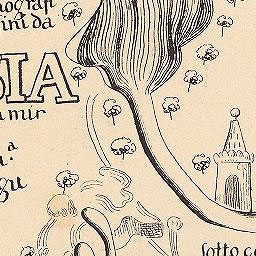 nografi
fini da
SIA
a mir
a
gu
sotto co